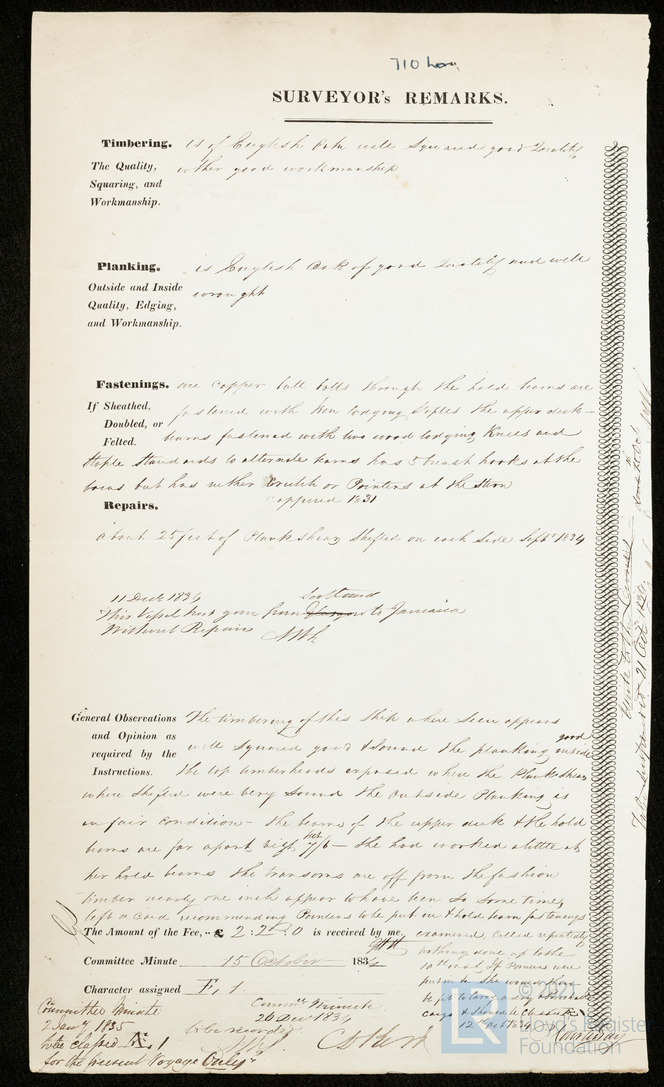 710 Lon
SURVEYOR's REMARKS.
Timbering. is of English Oak well squared good Quality
The Quality, wither good workmanship
Squaring, and
Workmanship.
Planking. is English Oak of good Quality and well
Outside and Inside wrought
Quality, Edging,
and Workmanship.
Fastenings. are copper butt bolts through the hold beams are
If Sheathed, fastened with Iron lodging staples the upper deck
Doubled, or beams fastened with two wood lodging Knees and
Felted.
Staple Standards to alternate beams has 5 breast hooks at the
bows but has nether Crutch or Pointers at the Stern
Repairs. coppered 1831
About 25 feet of Plank shear shifted on each side Septr 1834
11 Decr 1834 Scotland
This Vessel has gone from Glasgow to Jamaica
Without Repairs
General Observations The timbering of this Ship where seen appears
and Opinion as well squared good & sound the planking inside good
required by the
Instructions. the top timberheads exposed where the Plankshear
where shifted were very sound the outside Planking is
in fair condition - the beams of the upper deck & the hold
beams are far apart, 7/6 - She had worked a little at
her hold beams the transoms are off from the fashion
timber nearly one inch appear to have been so some time,
left a Card recommending Pointers to be put in & hold beam fastenings
The Amount of the Fee, £ 2:2:0 is received by me, examined, called repeatedly
nothing done up to the
Committee Minute 15 October 1834 10th inst. If Pointers are
put in
Character assigned F, 1
Committee Minute Commee Minute
2 Jany 1835 26 Decr 1834
to be classed Æ 1 to be recorded
for the present Voyage Only
cargo
© 2021
Lloyd's Register
Foundation